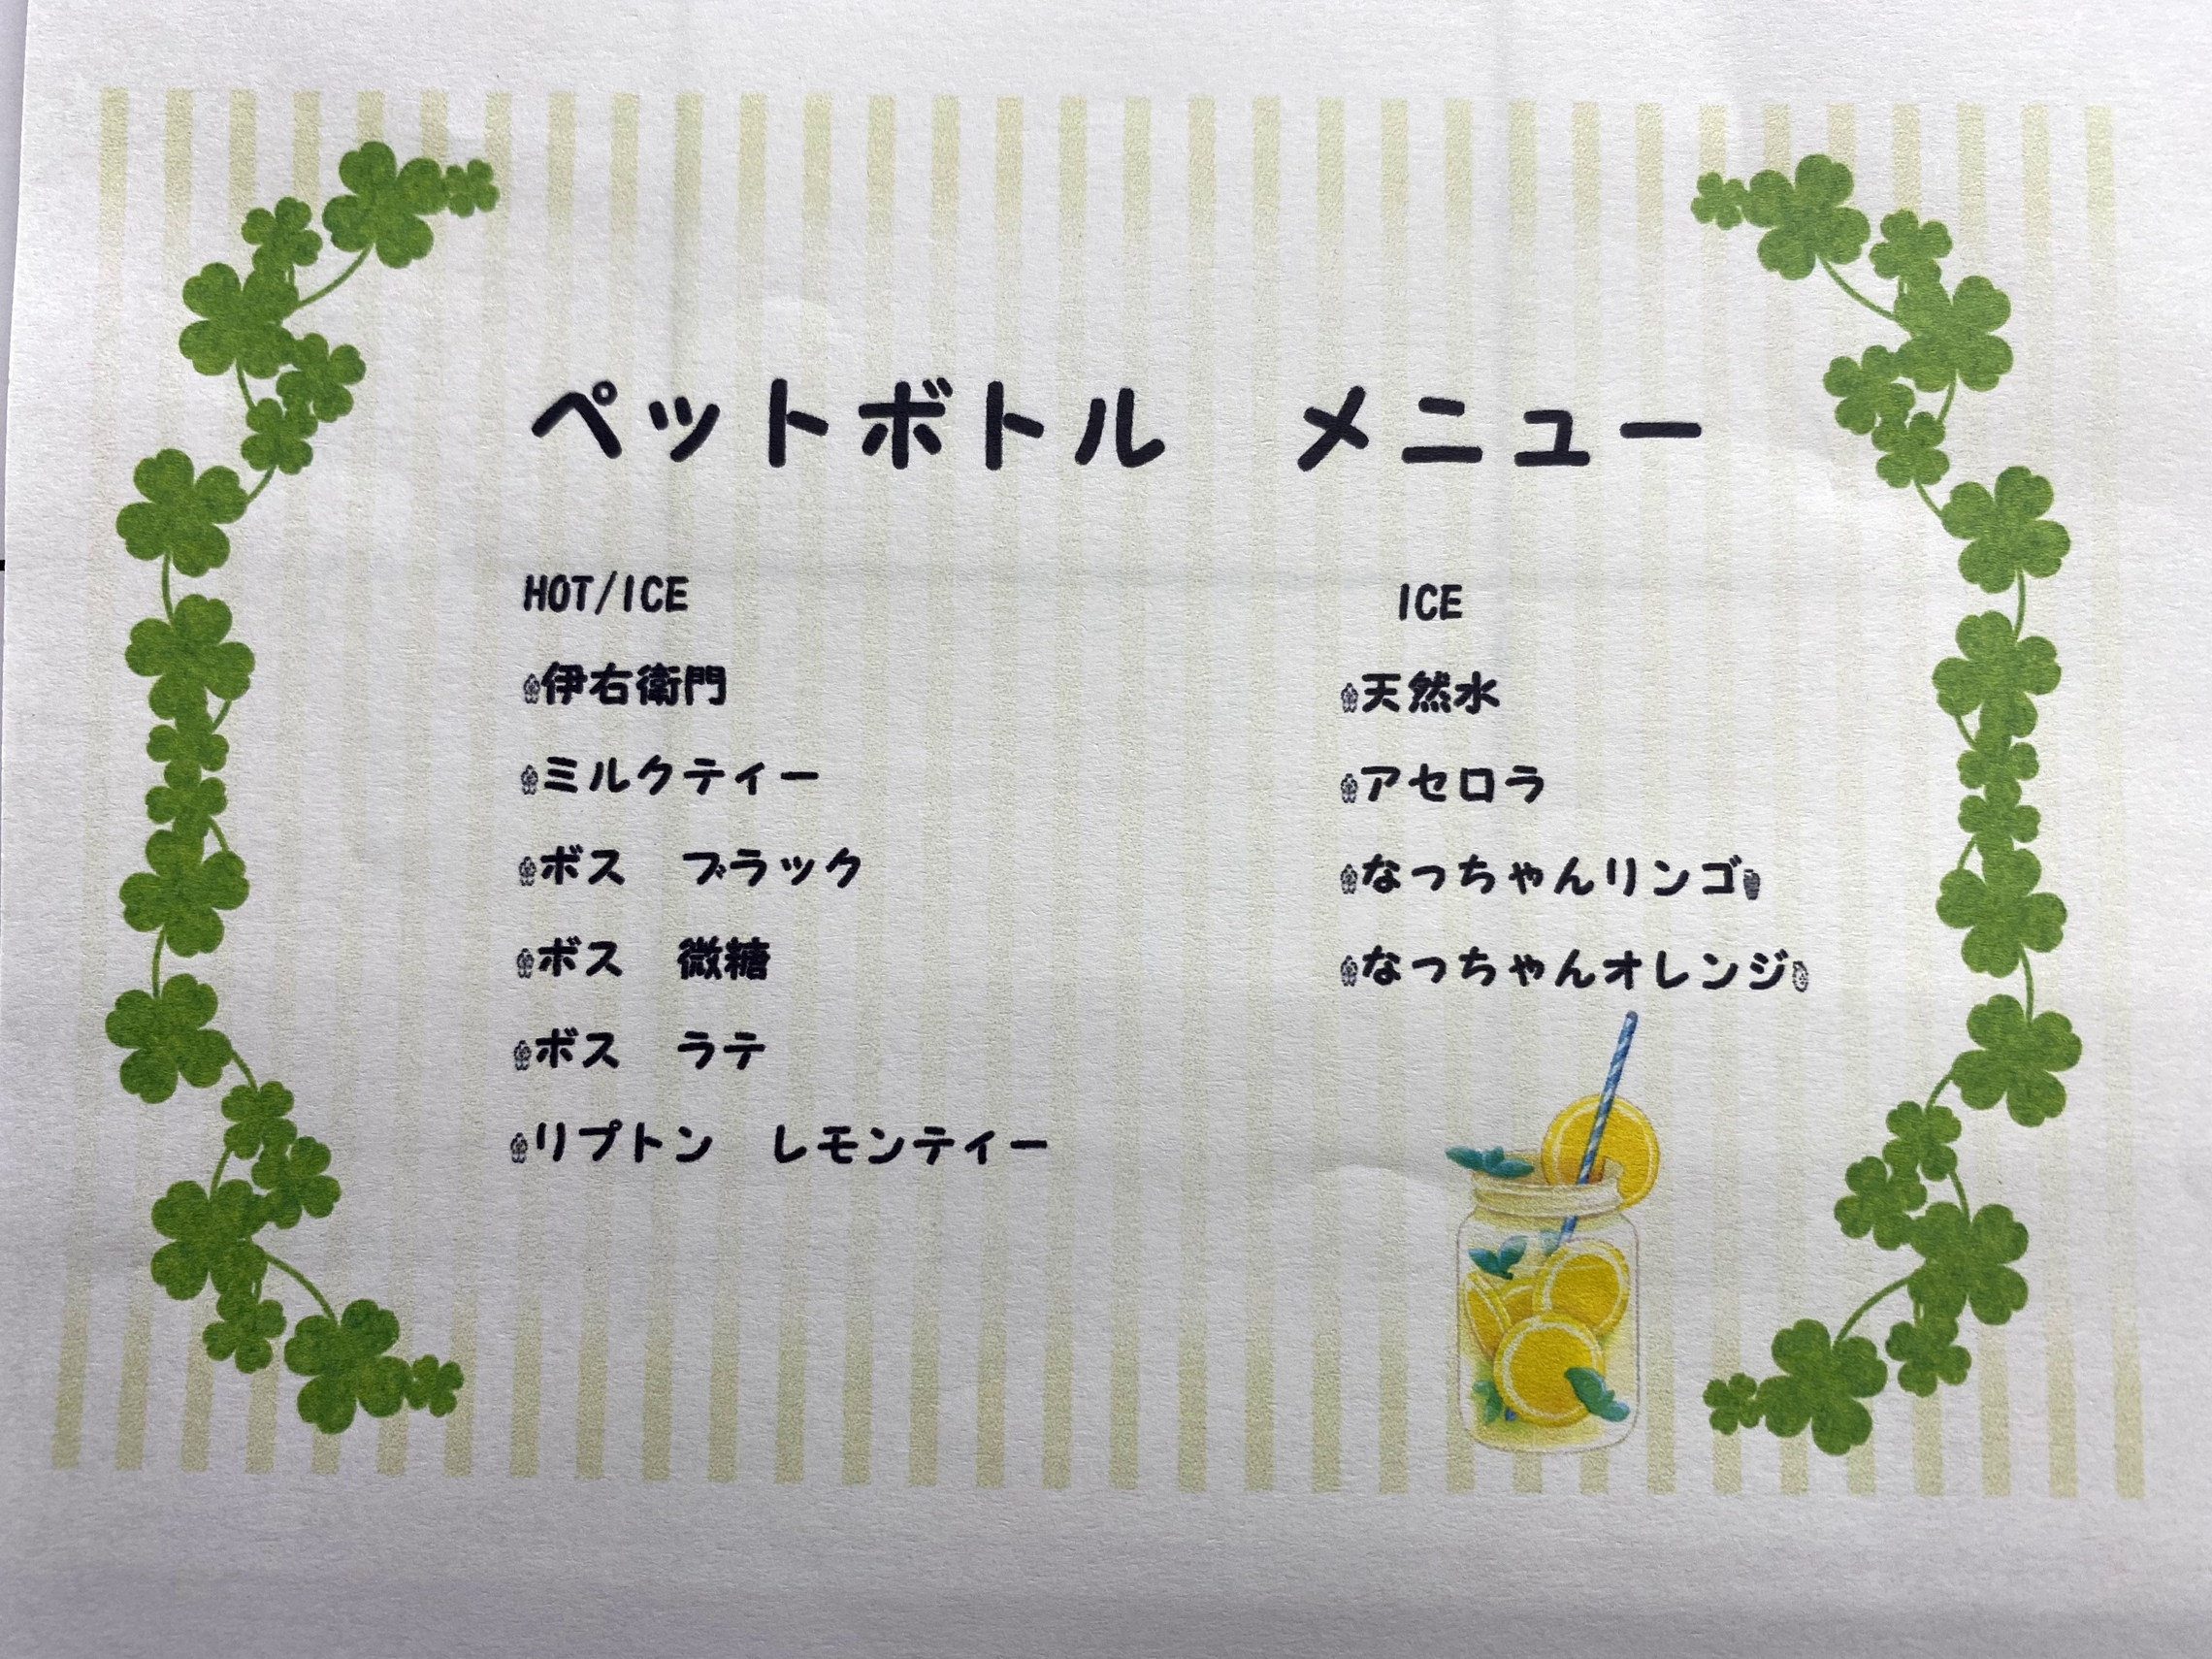 ペットボトル　メニュー
HOT/ICE
伊右衛門
ミルクティー
ボス　ブラック
ボス　微糖
ボス　ラテ
リプトン　レモンティー
ICE
天然水
アセロラ
なっちゃんリンゴ
なっちゃんオレンジ